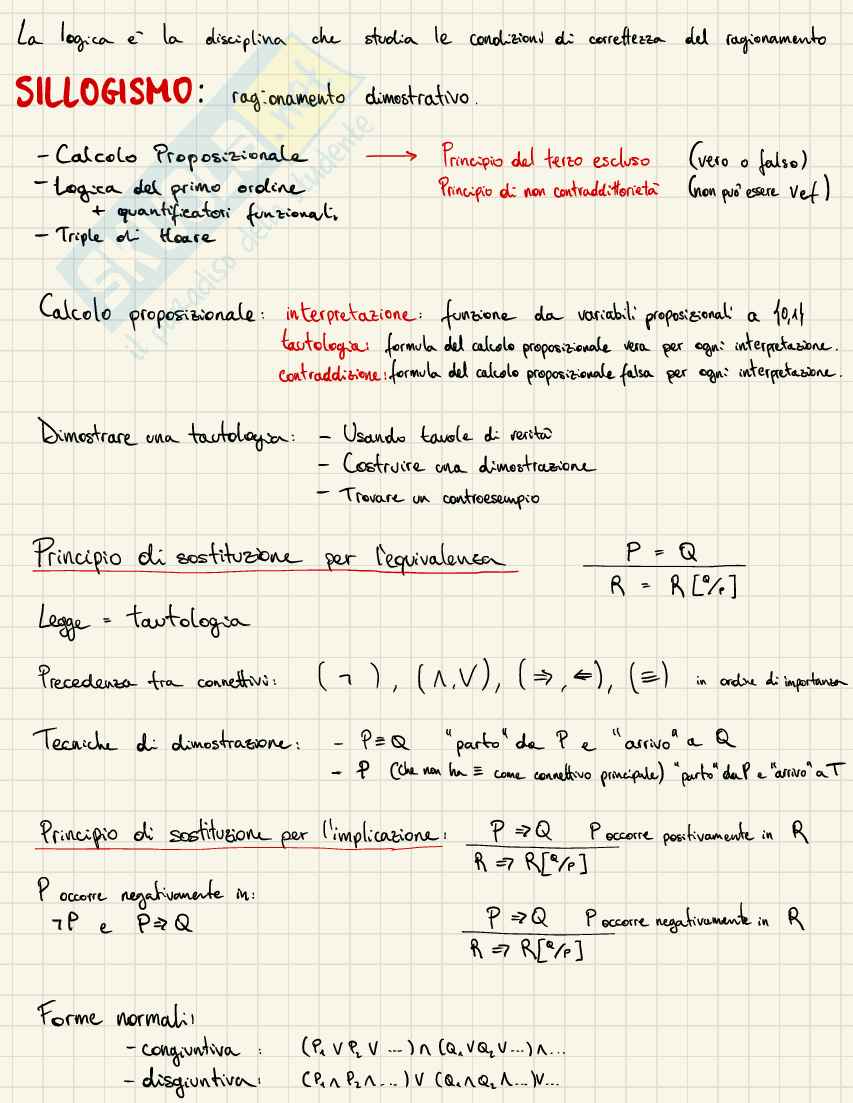 La logica è la disciplina che studia le condizioni di correttezza del ragionamento
SILLOGISMO: ragionamento dimostrativo.
- Calcolo Proposizionale → Principio del terzo escluso (vero o falso)
- Logica del primo ordine Principio di non contraddittorietà (non può essere vef)
+ quantificatori funzionali.
- Triple di Hoare
SKUOLA.net
il paradiso dello studente
Calcolo proposizionale: interpretazione: funzione da variabili proposizionali a {0,1}
tautologia: formula del calcolo proposizionale vera per ogni interpretazione.
contraddizione: formula del calcolo proposizionale falsa per ogni interpretazione.
Dimostrare una tautologia: - Usando tavole di verità
- Costruire una dimostrazione
- Trovare un controesempio
Principio di sostituzione per l'equivalenza P = Q
R = R[Q/P]
Legge = tautologia
Precedenza tra connettivi: (¬), (∧,∨), (⇒,⇐), (≡) in ordine di importanza
Tecniche di dimostrazione: - P≡Q "parto" da P e "arrivo" a Q
- P (che non ha ≡ come connettivo principale) "parto" da P e "arrivo" a T
Principio di sostituzione per l'implicazione: P ⇒ Q P occorre positivamente in R
R ⇒ R[Q/P]
P occorre negativamente in:
¬P e P⇒Q P ⇒ Q P occorre negativamente in R
R ⇒ R[Q/P]
Forme normali:
- congiuntiva: (P₁ ∨ P₂ ∨ ...) ∧ (Q₁ ∨ Q₂ ∨ ...) ∧ ...
- disgiuntiva: (P₁ ∧ P₂ ∧ ...) ∨ (Q₁ ∧ Q₂ ∧ ...) ∨ ...